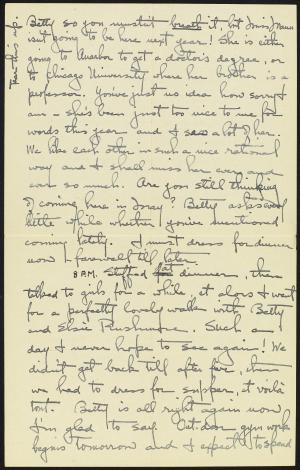 Tear this up
Betty so you mustn't breath it, but Miss
isn't going to be here next year! She is either
going to Ann Arbor to get a doctor's degree, or
to Chicago University where her brother is a
professor. You've just no idea how sorry I
am - she's been just too nice to me for
words this year - and I saw a lot of her.
We like each other in such a nice rational
way and I shall miss her ever and
ever so much. Are you still thinking
of coming here in May? Betty asked
little while whether you've mentioned
coming lately. I must dress for dinner
now - farewell till later.
8 P.M. Stuffed fat dinner, then
talked to girls for a while, et alors I went
for a perfectly lovely walk with Betty
and Elsie. Such a
day I never hope to see again! We
didn't get back till after five, then
we had to dress for supper, et voilà
tout. Betty is all right again now
I'm glad to say. Out-door gym work
begins tomorrow and I expect to spend